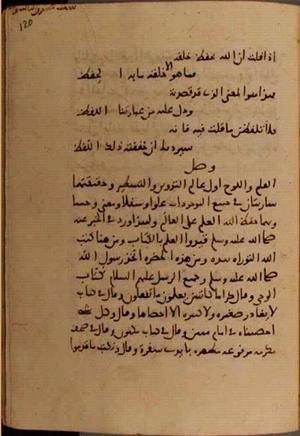 اذا قلت ان الله يحفظ خلقه
فما هو الا خلقه ما به يحفظ
هذا هو المعنى الذي قد قصدته
ودل عليه من عبارتنا اللفظ
فلا تلفظن ما قلت فيه فانه
سيرد ما ان حققته ذلك اللفظ
وصل
القلم واللوح اول عالم التدوين والتسطير وحقيقتهما
ساريتان في جميع الموجودات علوا وسفلا ومعنى وحسا
وبهما حفظ الله العلم على العالم ولهذا ورد في الخبر عنه
صلى الله عليه وسلم قيدوا العلم بالكتاب ومن هنا كتب
الله التوراة بيده ومن هذه الحضرة اتخذ رسول الله
صلى الله عليه وسلم وجميع الرسل عليهم السلام كتاب
الوحي وقال كراما كاتبين يعلمون ما تفعلون وقال في كتاب
لا يغادر صغيرة ولا كبيرة الا احصاها وقال وكل شيء
احصيناه في امام مبين وقال في كتاب مكنون وقال في صحف
مكرمة مرفوعة مطهرة بايدي سفرة وقال ونكتب ما قدموا